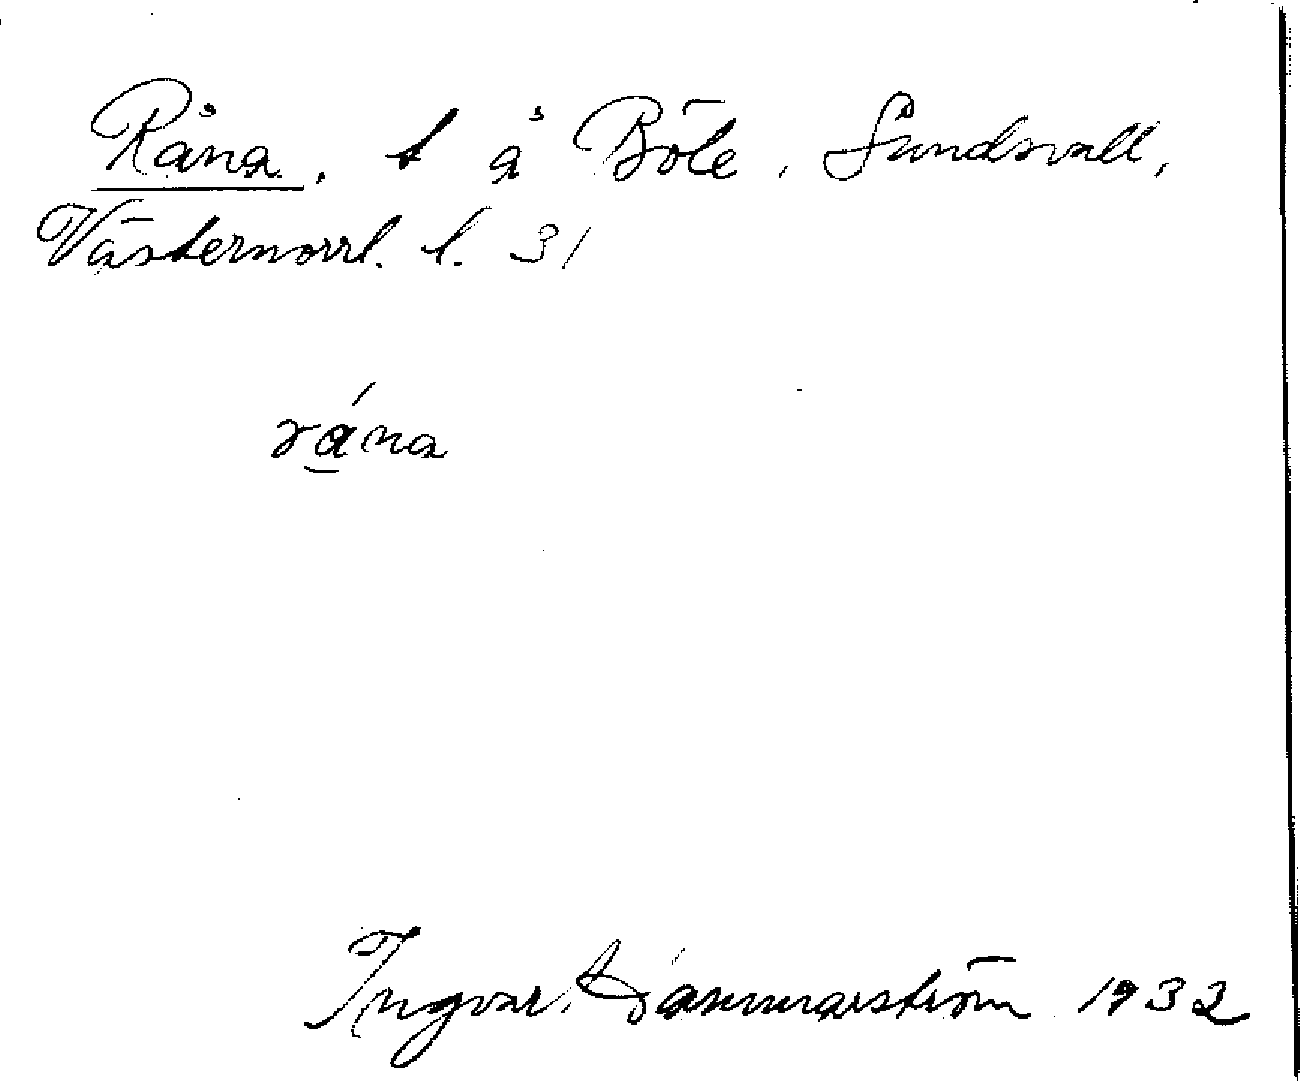 Råna, t å Böle, Sundsvall,
Västernorrl. l. 31
råna
Ingvar Dammarström 1932